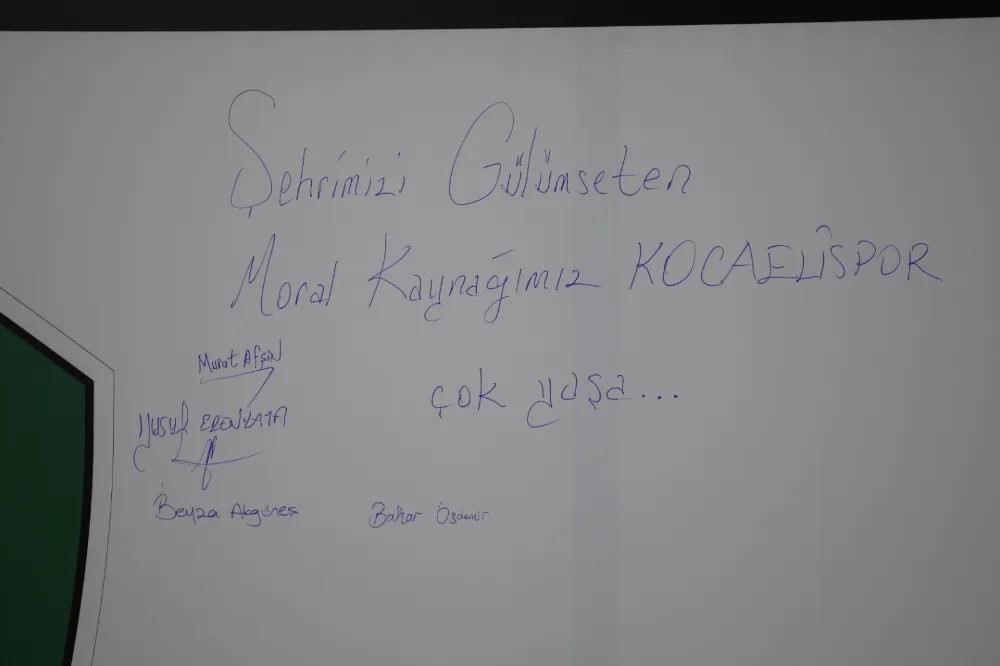 Şehrimizi Gülümseten
Moral Kaynağımız KOCAELİSPOR
çok yaşa...
Murat Afşin
Yusuf
Beyza Akgüneş
Bahar Özdemir